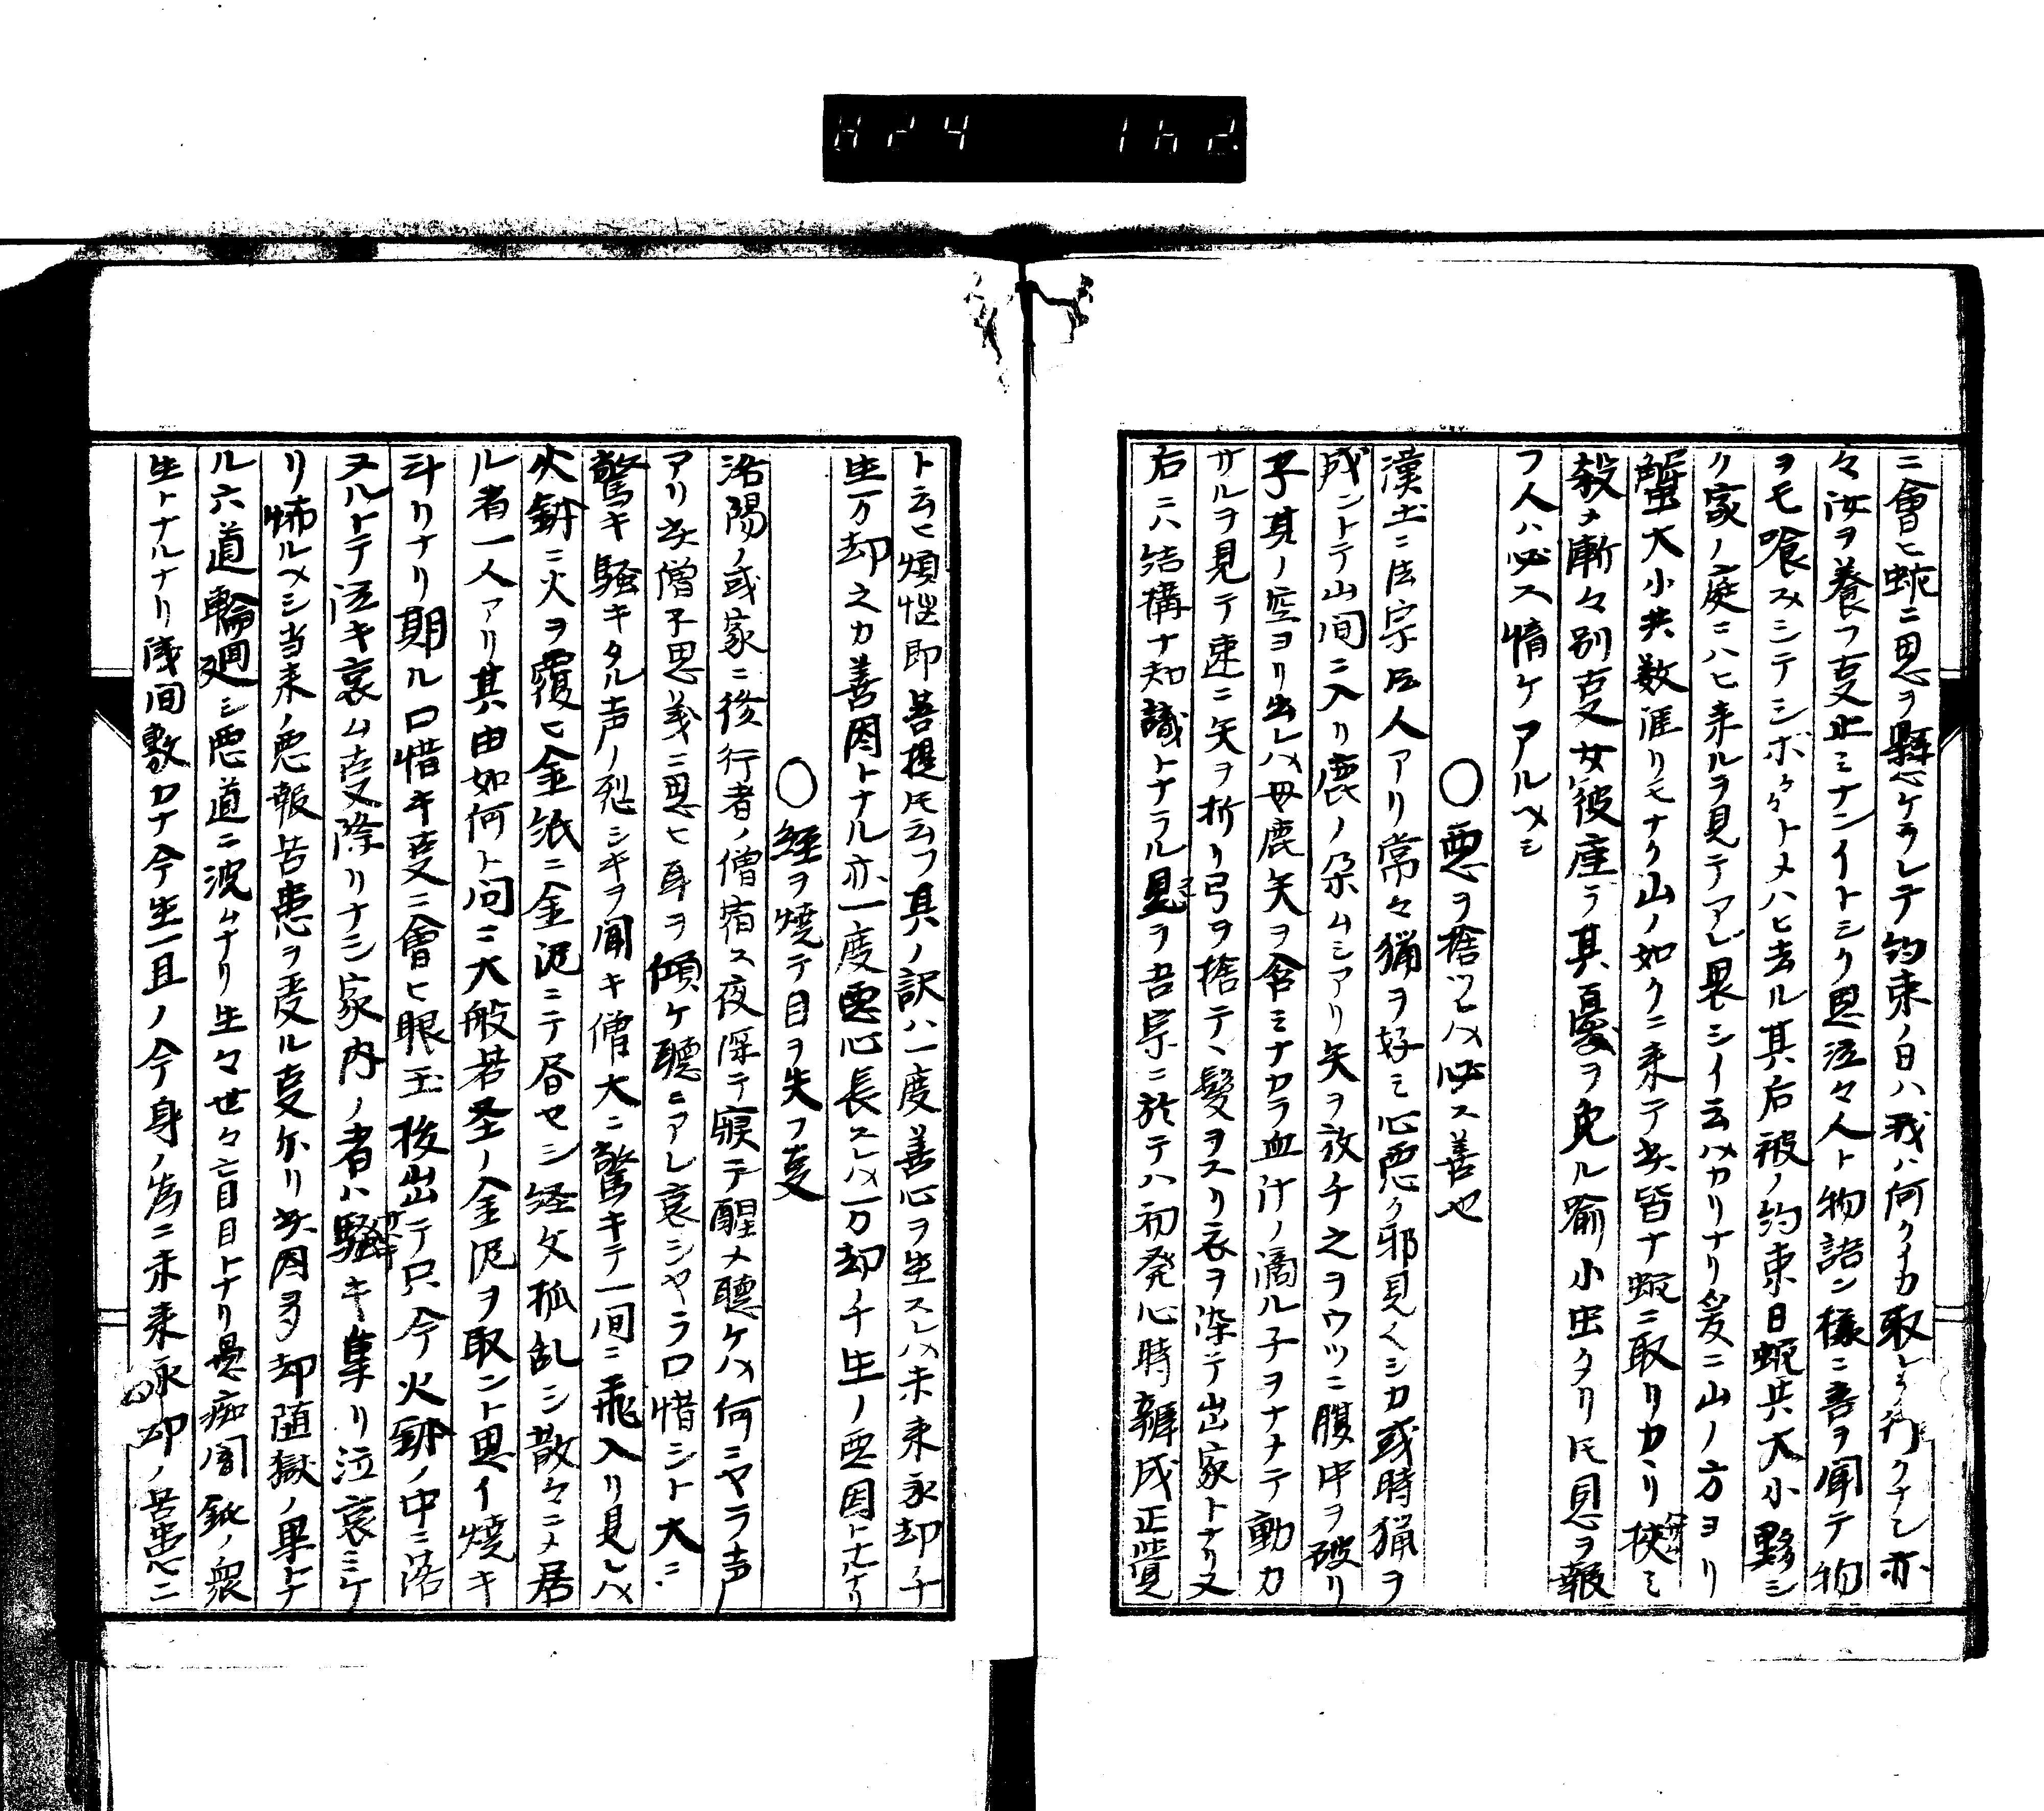 824 162
ニ會ヒ蛇ニ思ヲ懸ケラレテ約束ノ日ハ我ハ何クイカ取レ行クナシ亦
々汝ヲ養フ叓止ミナンイトシク思泣々人ト物語ン様ニ音ヲ聞テ物
ヲモ喰スメシテシボ〱トメハヒ去ル其后彼ノ約束日蛇共大小夥シ
ク家ノ庭ニハヒ来ルヲ見テアレ畏シイ云ハカリナリ爰ニ山ノ方ヨリ
蟹大小共数涯リモナク山ノ如クニ来テ共皆ナ蛇ニ取リカヽリ挾ミ
殺メ漸々別叓女彼座ラ其憂ヲ免ル喩小虫タリ𪜈恩ヲ報
フ人ハ必ス情ケアルヘシ
〇悪ヲ捨ツレハ必ス善也
漢土ニ法宗ト云人アリ常々猟ヲ好ミ心悪ク邪見ヘシカ或時猟ヲ
成ントテ山間ニ入リ鹿ノ孕ムシアリ矢ヲ放チ之ヲウツニ腹中ヲ破リ
子其ノ空ヨリ出レハ母鹿矢ヲ含ミナカラ血汁ノ滴ル子ヲナメテ動カ
サルヲ見テ速ニ矢ヲ折リ弓ヲ捨テ、髪ヲスリ衣ヲ染テ出家トナリ又
右ニハ結構ナ知識トナラル見ヨヲ吾宗ニ於テハ初発心時辨成正覚
ト云ヒ煩悩即菩提𪜈云フ其ノ訳ハ一度善心ヲ生スレハ未来永却ノ千
生万却之カ善因トナル亦一度悪心長スレハ万却ノ千生ノ悪因トナルナリ
〇経ヲ焼テ目ヲ失フ叓
洛陽ノ或家ニ後行者ノ僧宿ス夜深テ寝テ醒メ聴ケハ何ミヤラ声
アリ共僧不思义ニ思ヒ耳ヲ傾ケ聴ニアレ哀シヤラ口惜シト大ニ
驚キ騒キタル声ノ烈シキヲ聞キ僧大ニ驚キテ一間ニ飛入リ見レハ
火鉢ニ火ヲ覆ヒ金紙ニ金泥ニテ昼セシ経文狐乱シ散々ニメ居
ル者一人アリ其由如何ト問ニ大般若圣ノ金泥ヲ取ント思イ焼キ
斗リナリ期ル口惜キ叓ニ會ヒ眼玉抜出テ只今火鉢ノ中ニ落
ヌルトテ泣キ哀ム叓限リナシ家内ノ者ハ騒キ集リ泣哀ミケ
リ怖ルヘシ当来ノ悪報苦患ヲ受ル叓分リ共因多却随獄ノ果トナ
ル六道輪廻シ悪道ニ沈ムナリ生々世々盲目トナリ愚痴闇鈍ノ衆
生トナルナリ浅間敷カナ今生一旦ノ今身ノ為ニ未来永却ノ苦患ニ